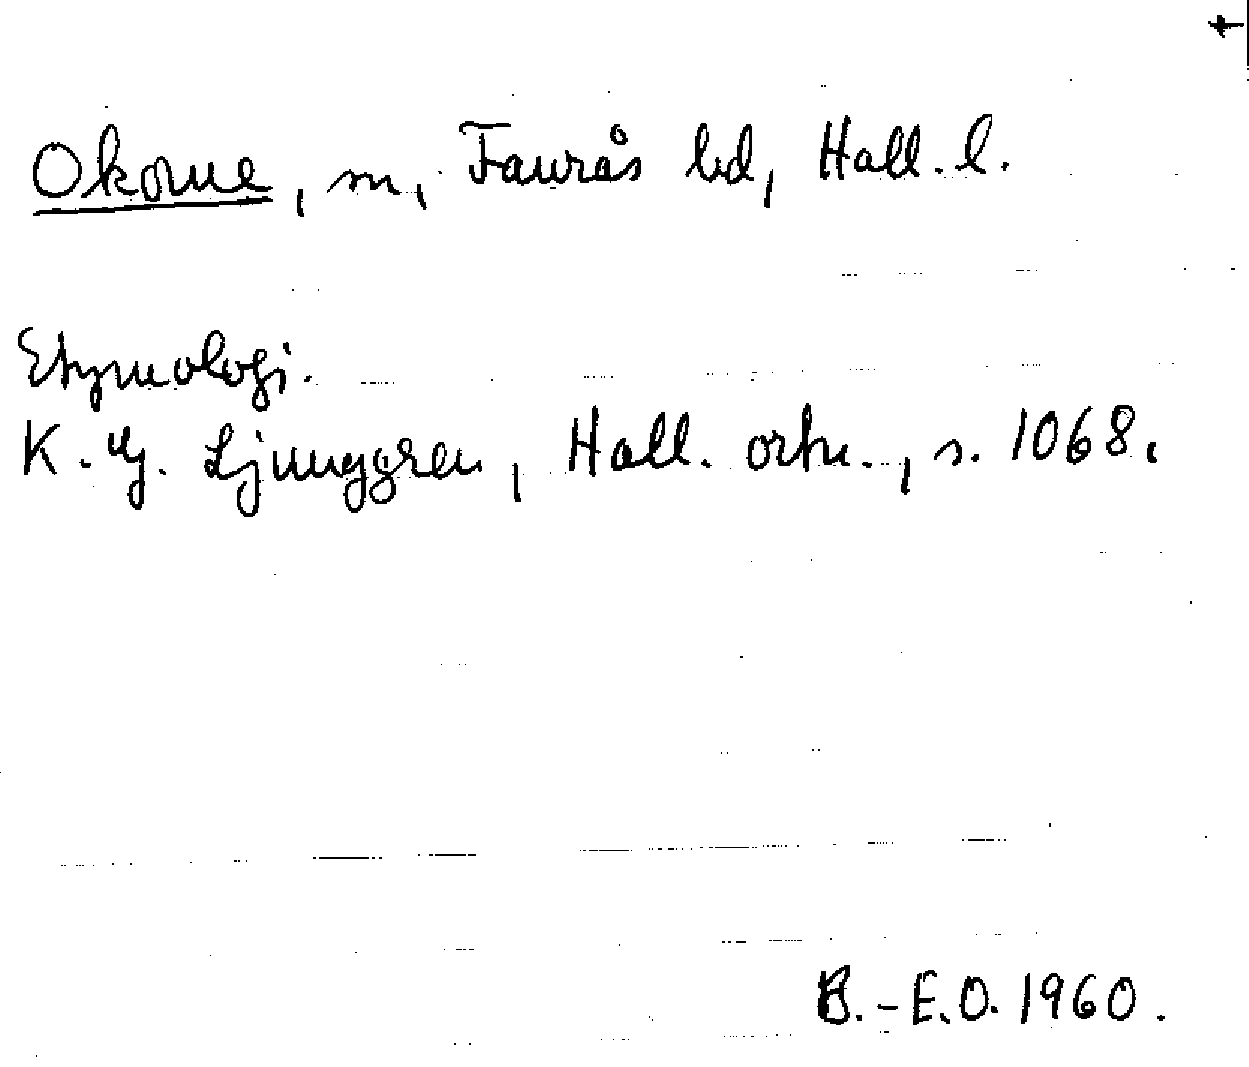 Okome, sn, Faurås hd, Hall. l.
Etymologi.
K. G. Ljunggren, Hall. ortn., s. 1068.
B.-E.O. 1960.